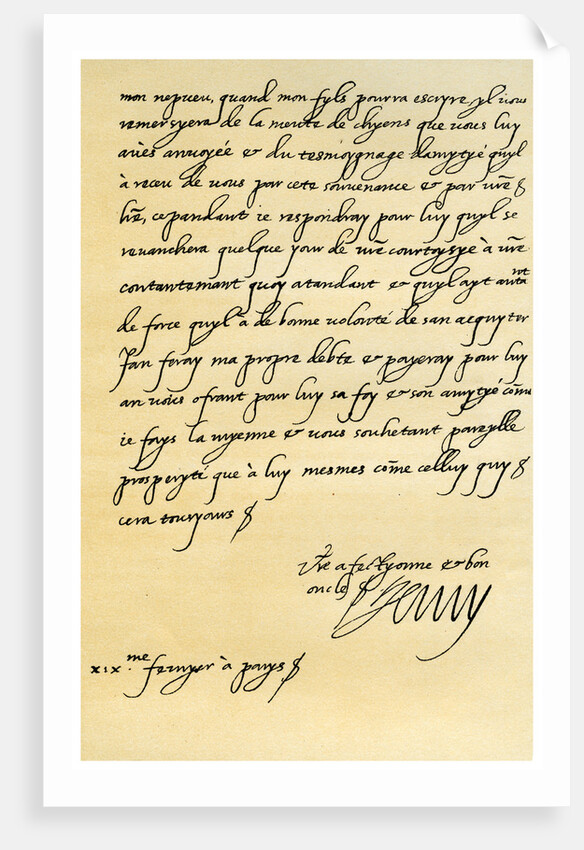 mon nepueu, quand mon fyls pourra escryre yl vous
remersyera de la meute de chyens que vous luy
aués anuoyée & du tesmoygnage damytyé quyl
à receu de vous par cete souuenance & par vre
lre, cepandant ie respondray pour luy quyl se
reuanchera quelque jour de vre courtoysye à vre
contantemant quoy atandant & quyl ayt autant
de force quyl à de bonne volonté de san acquyter
Jan feray ma propre debte & payeray pour luy
an vous ofrant pour luy sa foy & son amytyé come
ie fays la myenne & vous souhetant pareylle
prosperyté que à luy mesmes come celluy quy
cera touryours
Vre afectyonne & bon
oncle Henry
xix.me feuryer à parys